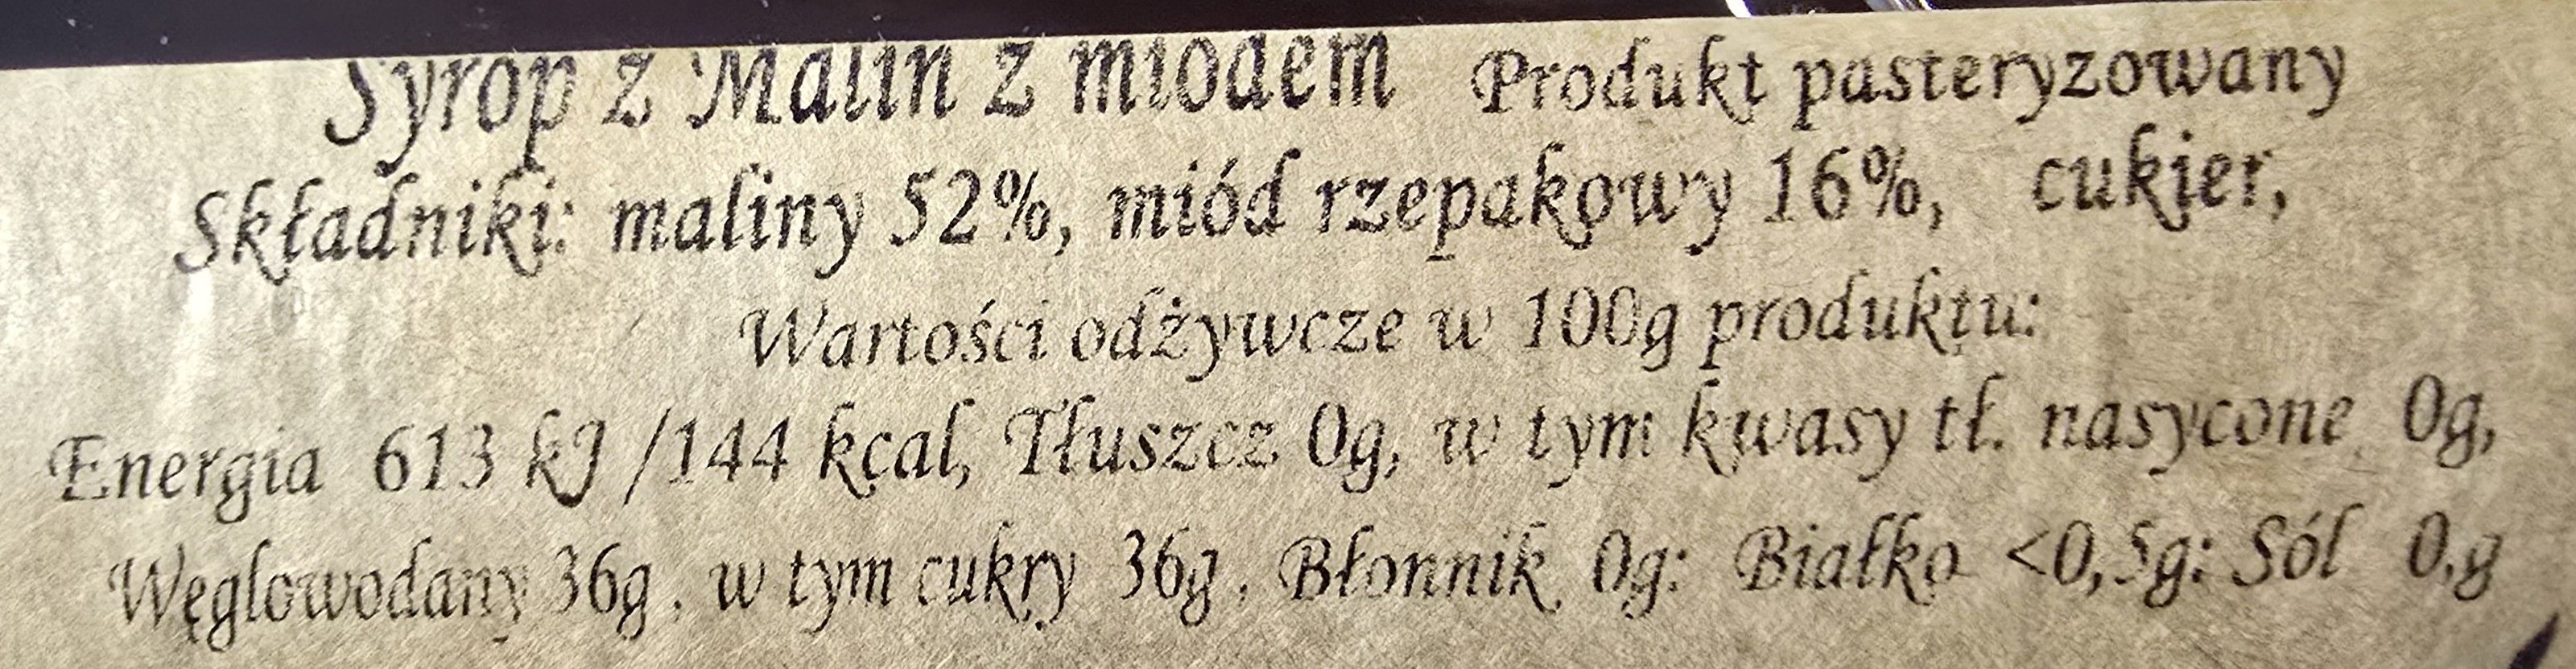 Syrop z Malin z miodem Produkt pasteryzowany
Składniki: maliny 52%, miód rzepakowy 16%, cukier,
Wartości odżywcze w 100g produktu:
Energia 613 kJ /144 kcal, Tłuszcz 0g, w tym kwasy tł. nasycone 0g,
Węglowodany 36g, w tym cukry 36g, Błonnik 0g: Białko <0,5g: Sól 0,g